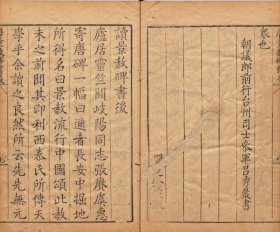 聚也
朝議郎前行台州司士參軍呂秀巖書
讀景教碑書後
廬居靈竺間岐陽同志張賡虞惠
寄唐碑一幅曰邇者長安中掘地
所得名曰景教流行中國頌此教
未之前聞其即利西泰氏所傳天
學乎余讀之良然所云先先無元